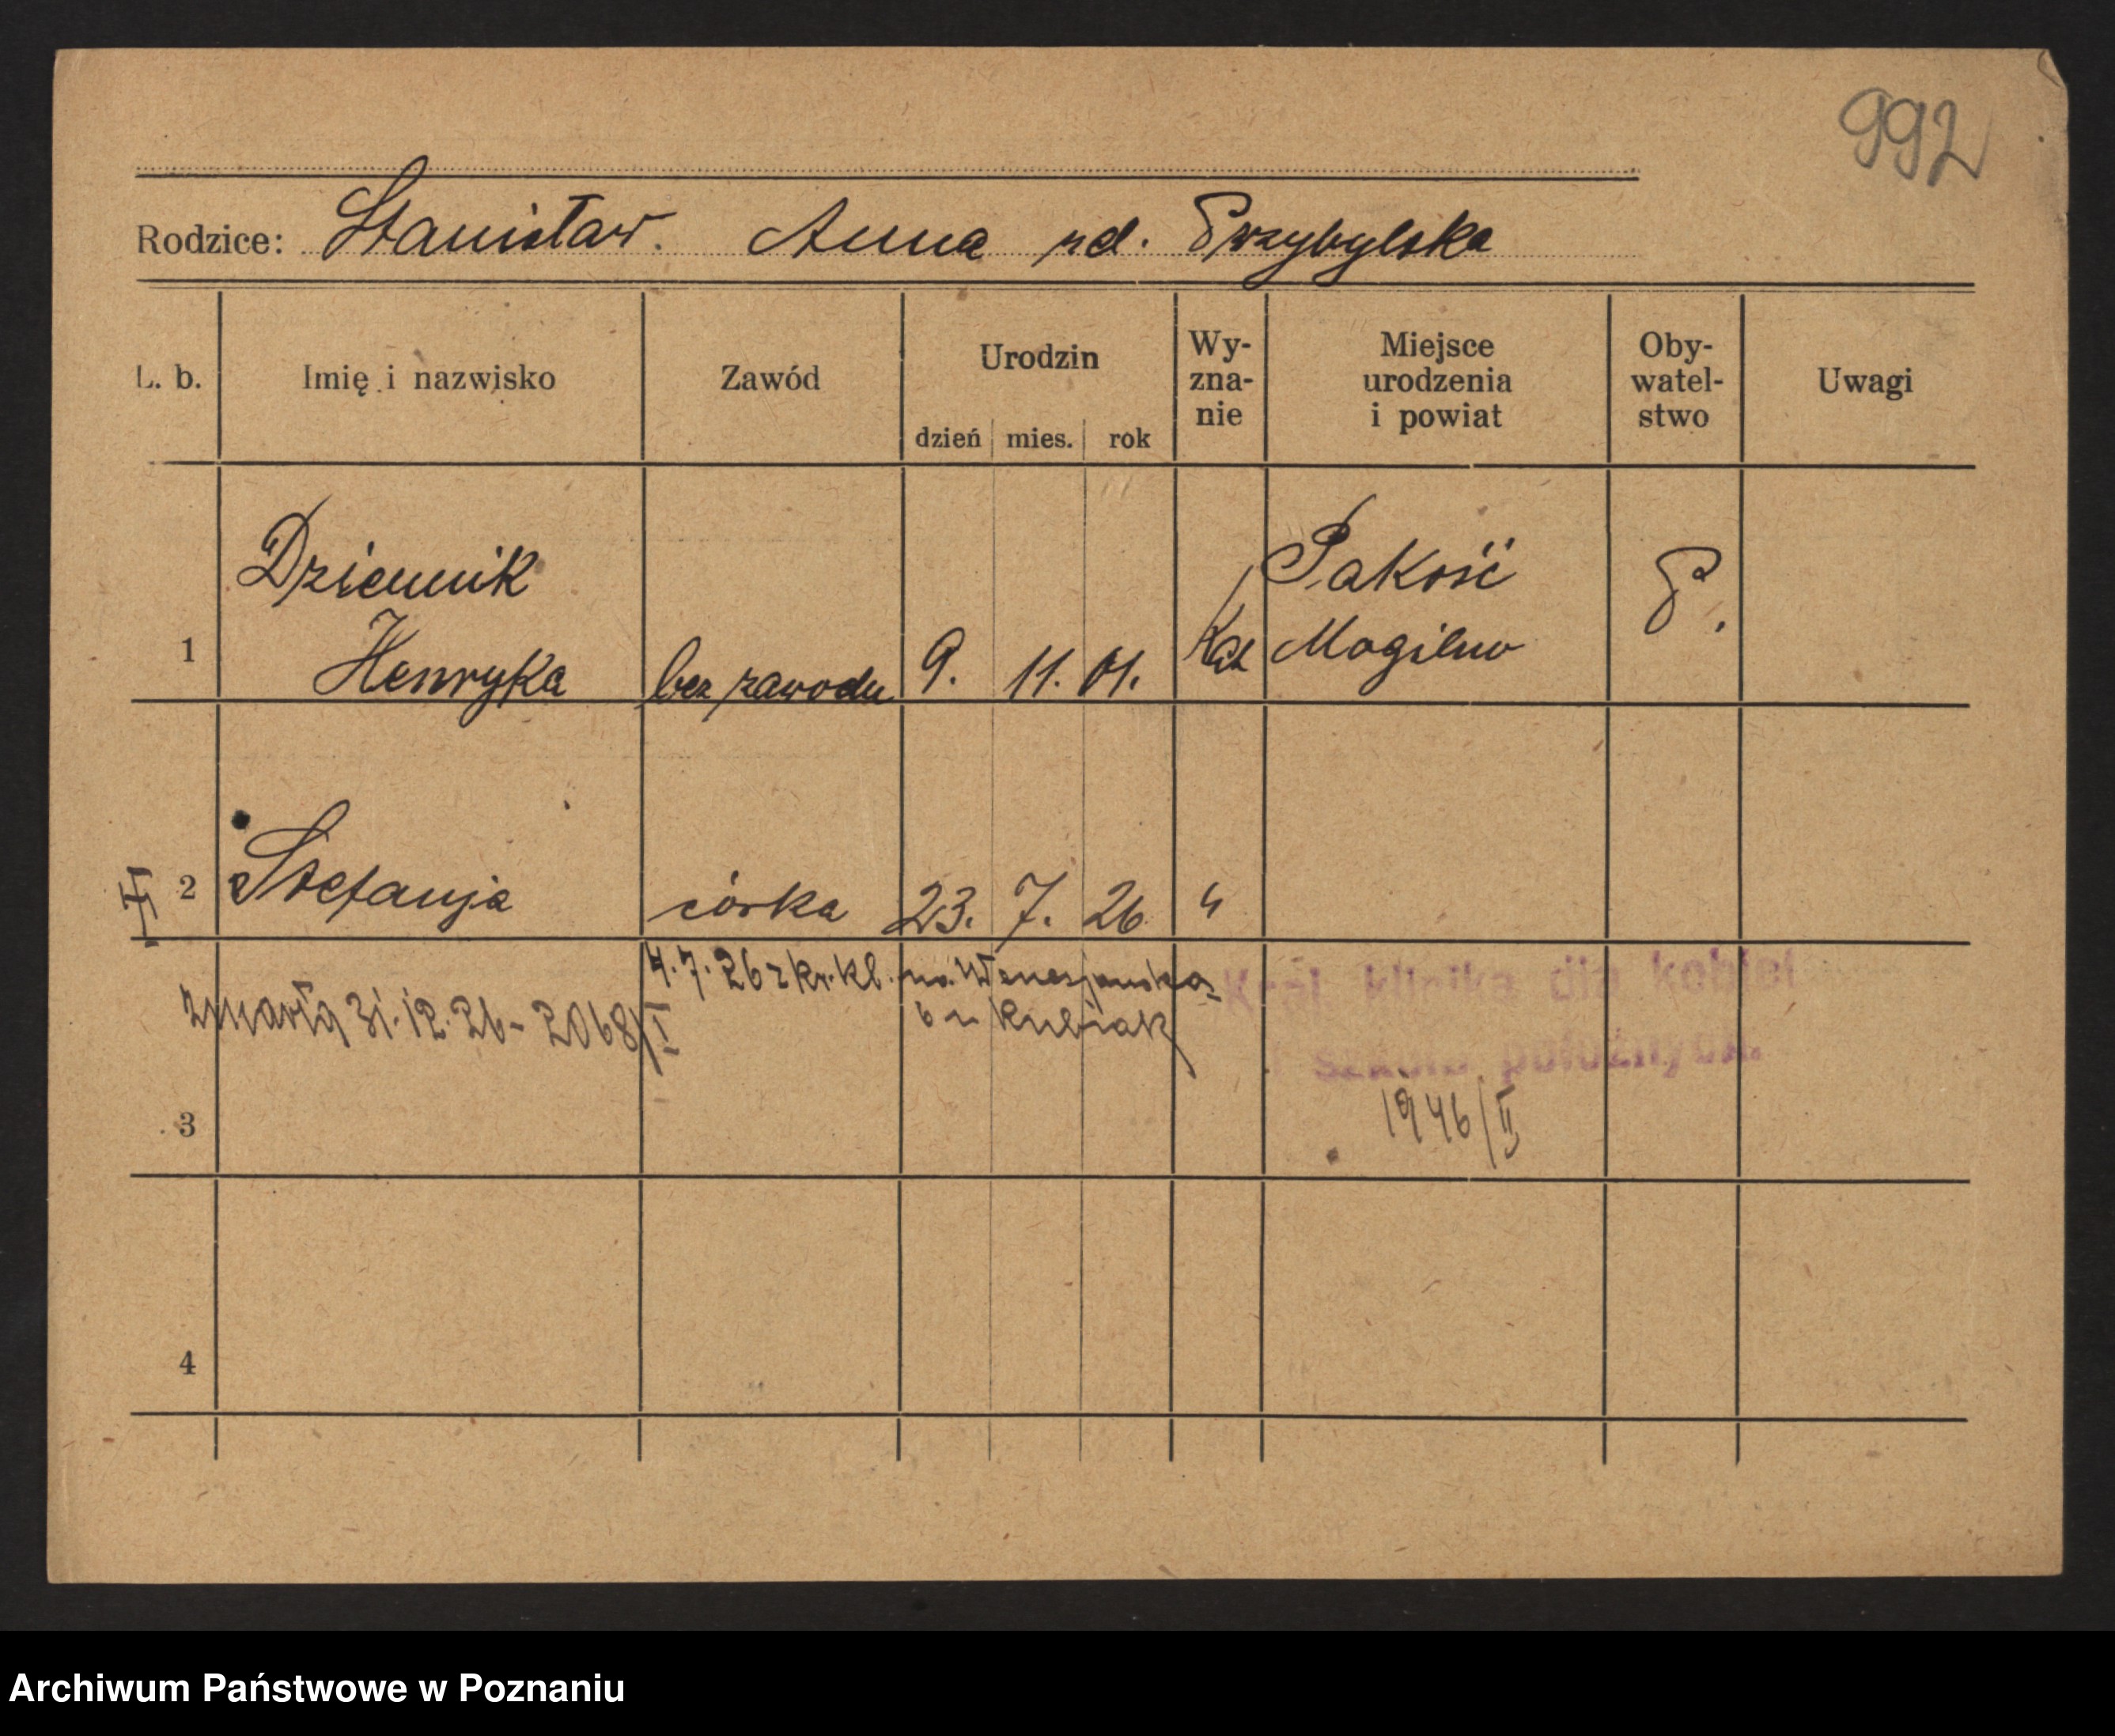 992
Rodzice: Stanisław. Anna zd. Przybylska
L. b. Imię i nazwisko Zawód Urodzin Wy- Miejsce Oby- Uwagi
zna- urodzenia watel-
nie i powiat stwo
dzień mies. rok
Dziennik Pakość P.
1 Henryka bez zawodu 9. 11. 01. Kat Mogilno
II 2 Stefanja córka 23. 7. 26 "
4.7.26 z kr. kl. na Wenecjańska
6 u Kubiak
zmarła 31.12.26 - 2068/I
Król. klinika dla kobiet
i szkoła położnych.
1946/II
3
4
Archiwum Państwowe w Poznaniu